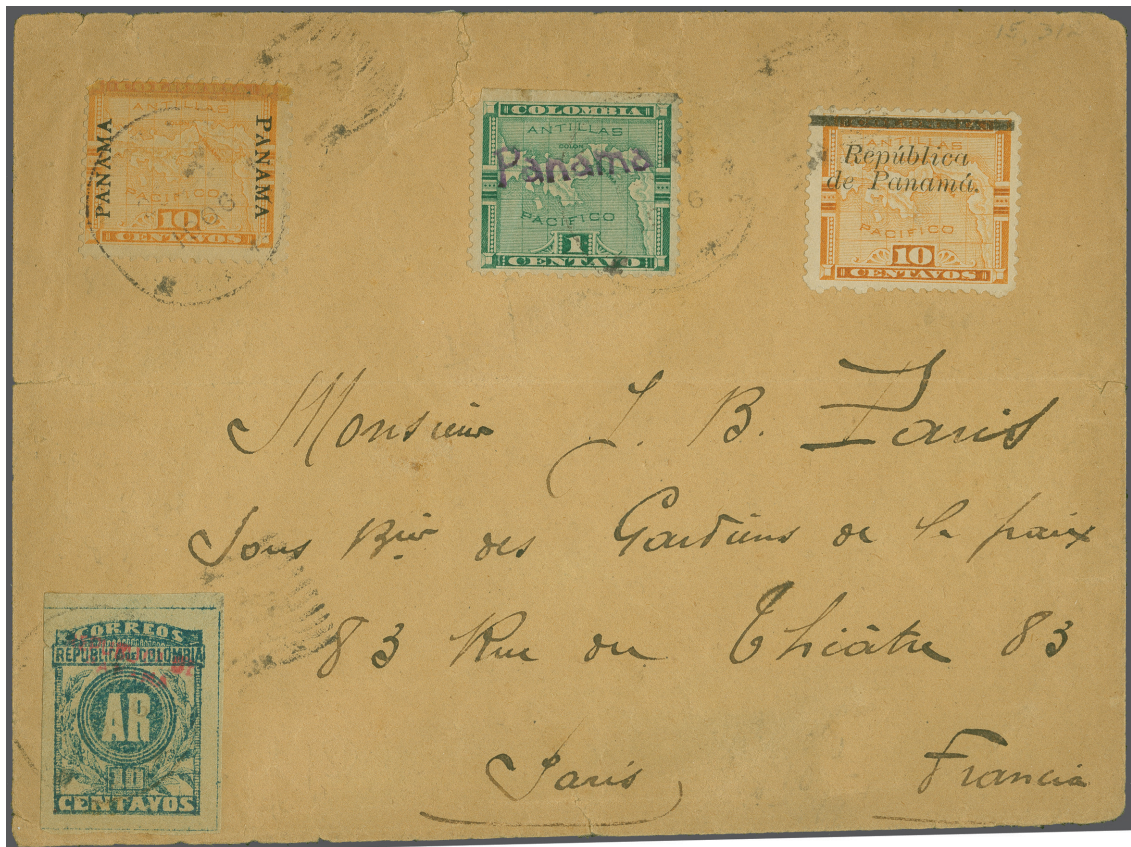 ANTILLAS
PANAMA
PANAMA
PACIFICO
10
CENTAVOS
COLOMBIA
ANTILLAS
COLON
Panama
PACIFICO
1
CENTAVO
República
de Panamá.
PACIFICO
10
CENTAVOS
Monsieur J. B. Paris
Sous Bier des Gardiens de la paix
83 Rue du Théâtre 83
Paris Francia
CORREOS
REPUBLICA DE COLOMBIA
AR
10
CENTAVOS